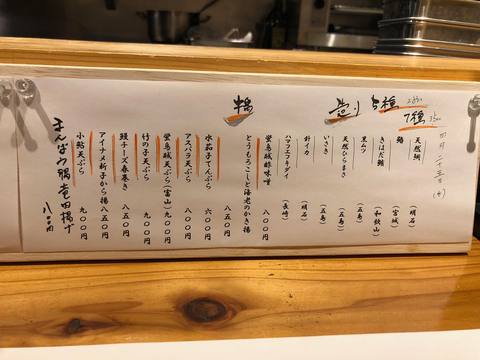 四月二十三日
造り 5種
7種
天然鯛 (明石)
鰆 (宮城)
きはだ鮪 (和歌山)
黒ムツ
天然ひらまさ (五島)
いさき (五島)
針イカ (明石)
ハマフエフキダイ (長崎)
蛍烏賊酢味噌 八〇〇円
揚
とうもろこしと海老のかき揚 八五〇円
水茄子てんぷら 六〇〇円
アスパラ天ぷら 八〇〇円
蛍烏賊天ぷら(富山) 九〇〇円
竹の子天ぷら 九〇〇円
鰻チーズ春巻き 八五〇円
アイナメ新子から揚 八五〇円
小鮎天ぷら 九〇〇円
まんぼう腸竜田揚げ 八〇〇円